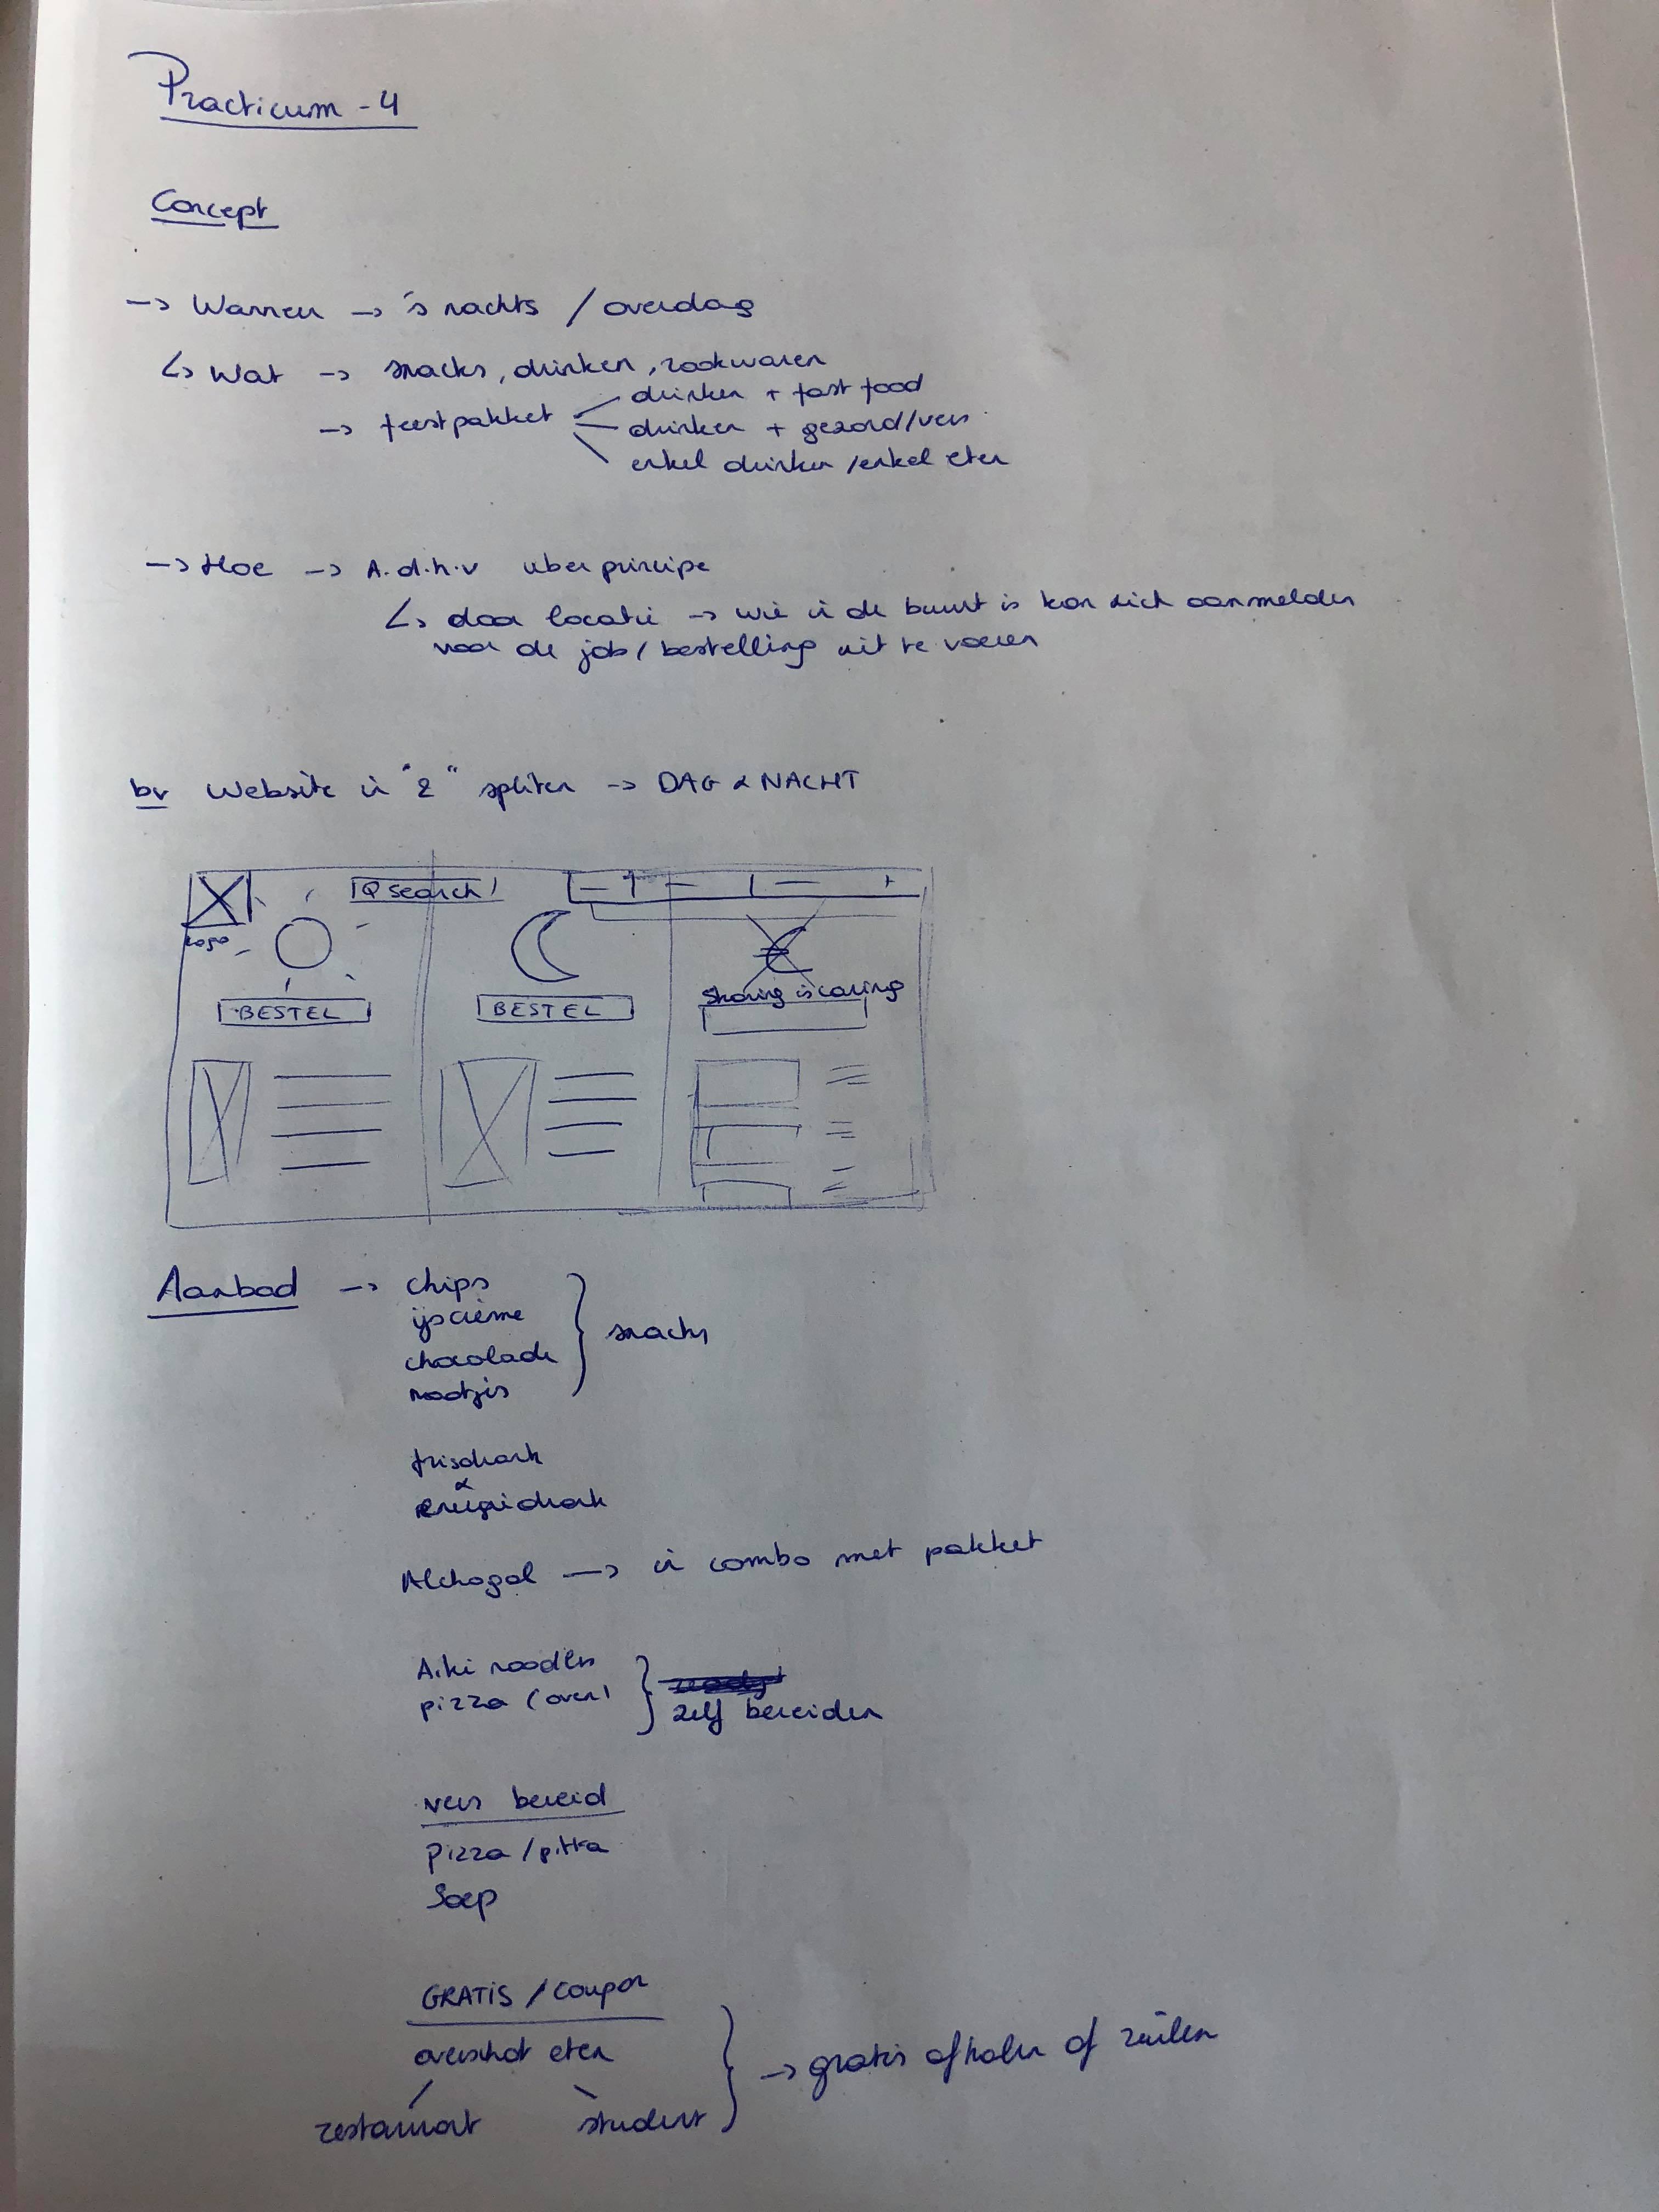 Practicum - 4
Concept
-> Wanneer -> 's nachts / overdag
↳ Wat -> snacks, drinken, rookwaren
-> feestpakket
drinken + fast food
drinken + gezond/vers
enkel drinken / enkel eten
-> Hoe -> A.d.h.v uber principe
↳ door locatie -> wie in de buurt is kan zich aanmelden
voor de job / bestelling uit te voeren
bv Website in "2" spliten -> DAG & NACHT
Search
Logo
BESTEL
BESTEL
Sharing is caring
Aanbod -> chips
ijscrème
chocolade
nootjes
snacks
frisdrank
&
energiedrank
Alchogol -> in combo met pakket
Aiki noodles
pizza (oven)
zelf bereiden
vers bereid
Pizza / pitta
Soep
GRATIS / Coupon
overschot eten
restaurant student
-> gratis afhalen of ruilen